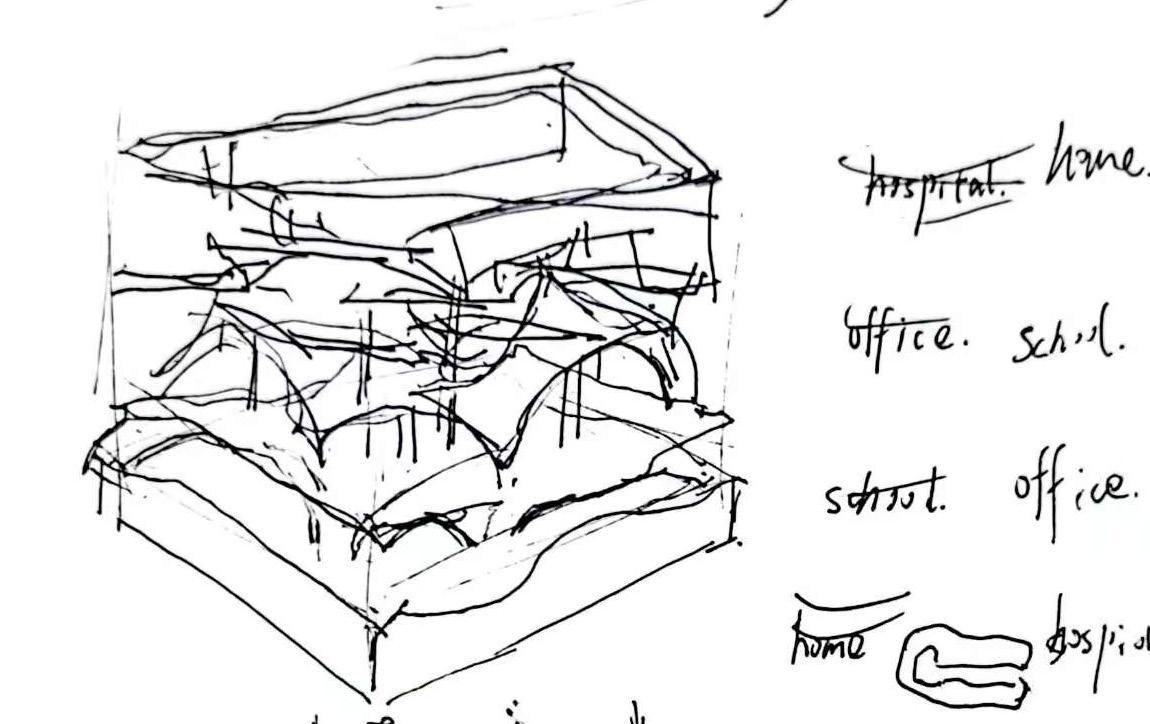 hospital. home.
office. school.
school. office.
home hospi